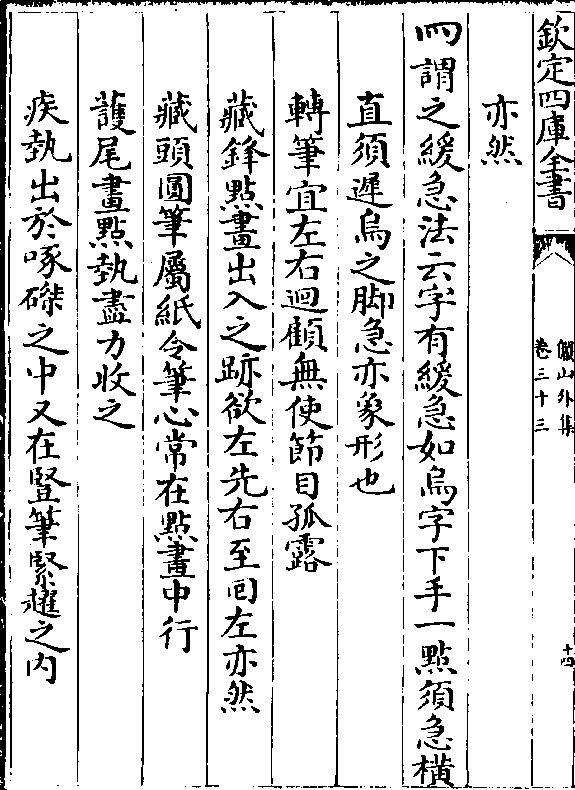 欽定四庫全書
儼山外集
卷三十三
十四
亦然
四謂之緩急法云字有緩急如烏字下手一點須急橫
直須遲烏之脚急亦象形也
轉筆宜左右迴顧無使節目孤露
藏鋒點畫出入之跡欲左先右至囘左亦然
藏頭圓筆屬紙令筆心常在點畫中行
護尾畫點埶盡力收之
疾埶出於啄磔之中又在豎筆緊趯之内